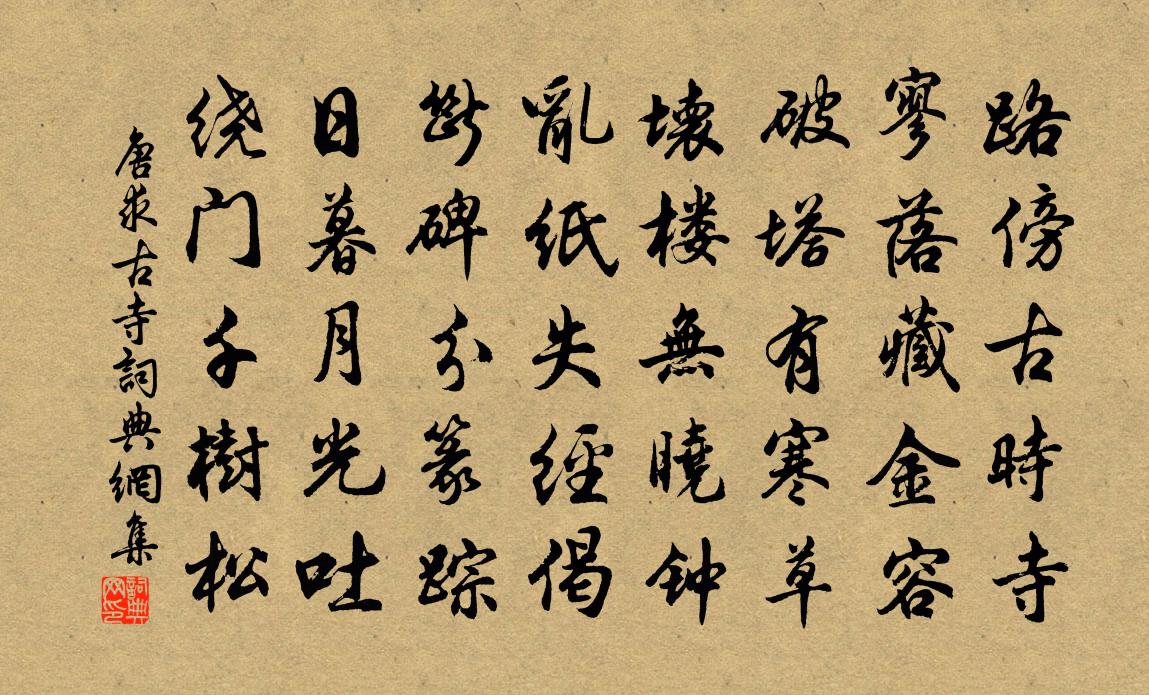 路傍古時寺
寥落藏金容
破塔有寒草
壞楼無曉钟
亂紙失經偈
斷碑分篆踪
日暮月光吐
绕门千樹松
唐求古寺詞典網集
詞典网印